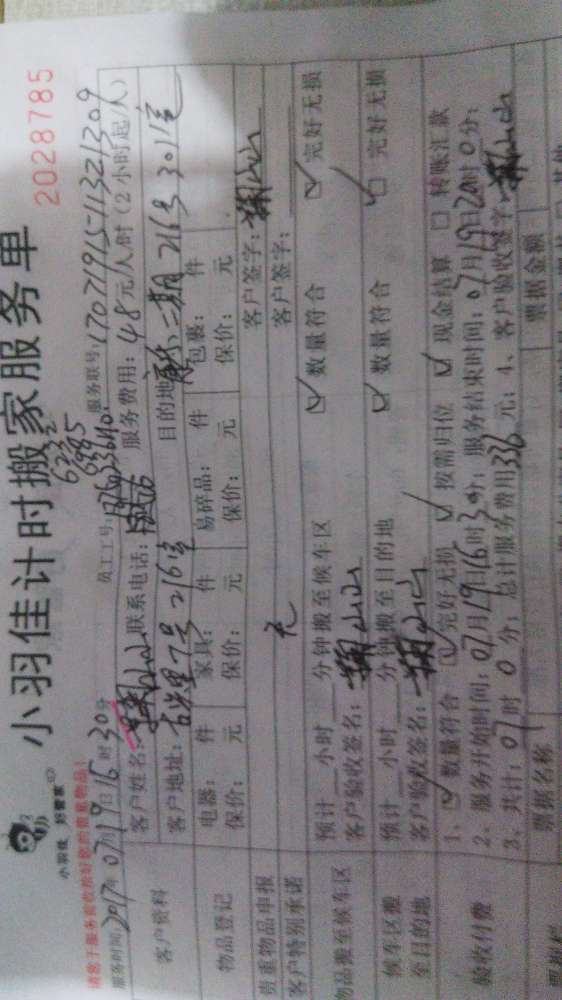 小羽佳 好管家
小羽佳计时搬家服务单
2028785
服务时间：2017年07月19日16时30分
员工工号：
服务联号：17071915-11321309
客户资料
客户姓名：
联系电话：
服务费用：48元/人/时（2小时起/人）
客户地址：
目的地
物品登记
电器： 件 家具： 件 易碎品： 件 包裹： 件
保价： 元 保价： 元 保价： 元 保价： 元
贵重物品申报
无
客户签字：
客户特别承诺
客户签字：
物品搬至候车区
预计 小时 分钟搬至候车区
数量符合 完好无损
客户验收签名：
候车区搬至目的地
预计 小时 分钟搬至目的地
数量符合 完好无损
客户验收签名：
验收付费
1、 数量符合 完好无损 按需归位 现金结算 转账汇款
2、服务开始时间：07月19日16时30分；服务结束时间：07月19日20时0分；
3、共计：07时0分；总计服务费用336元；4、客户验收签字：
票据名称
票据金额